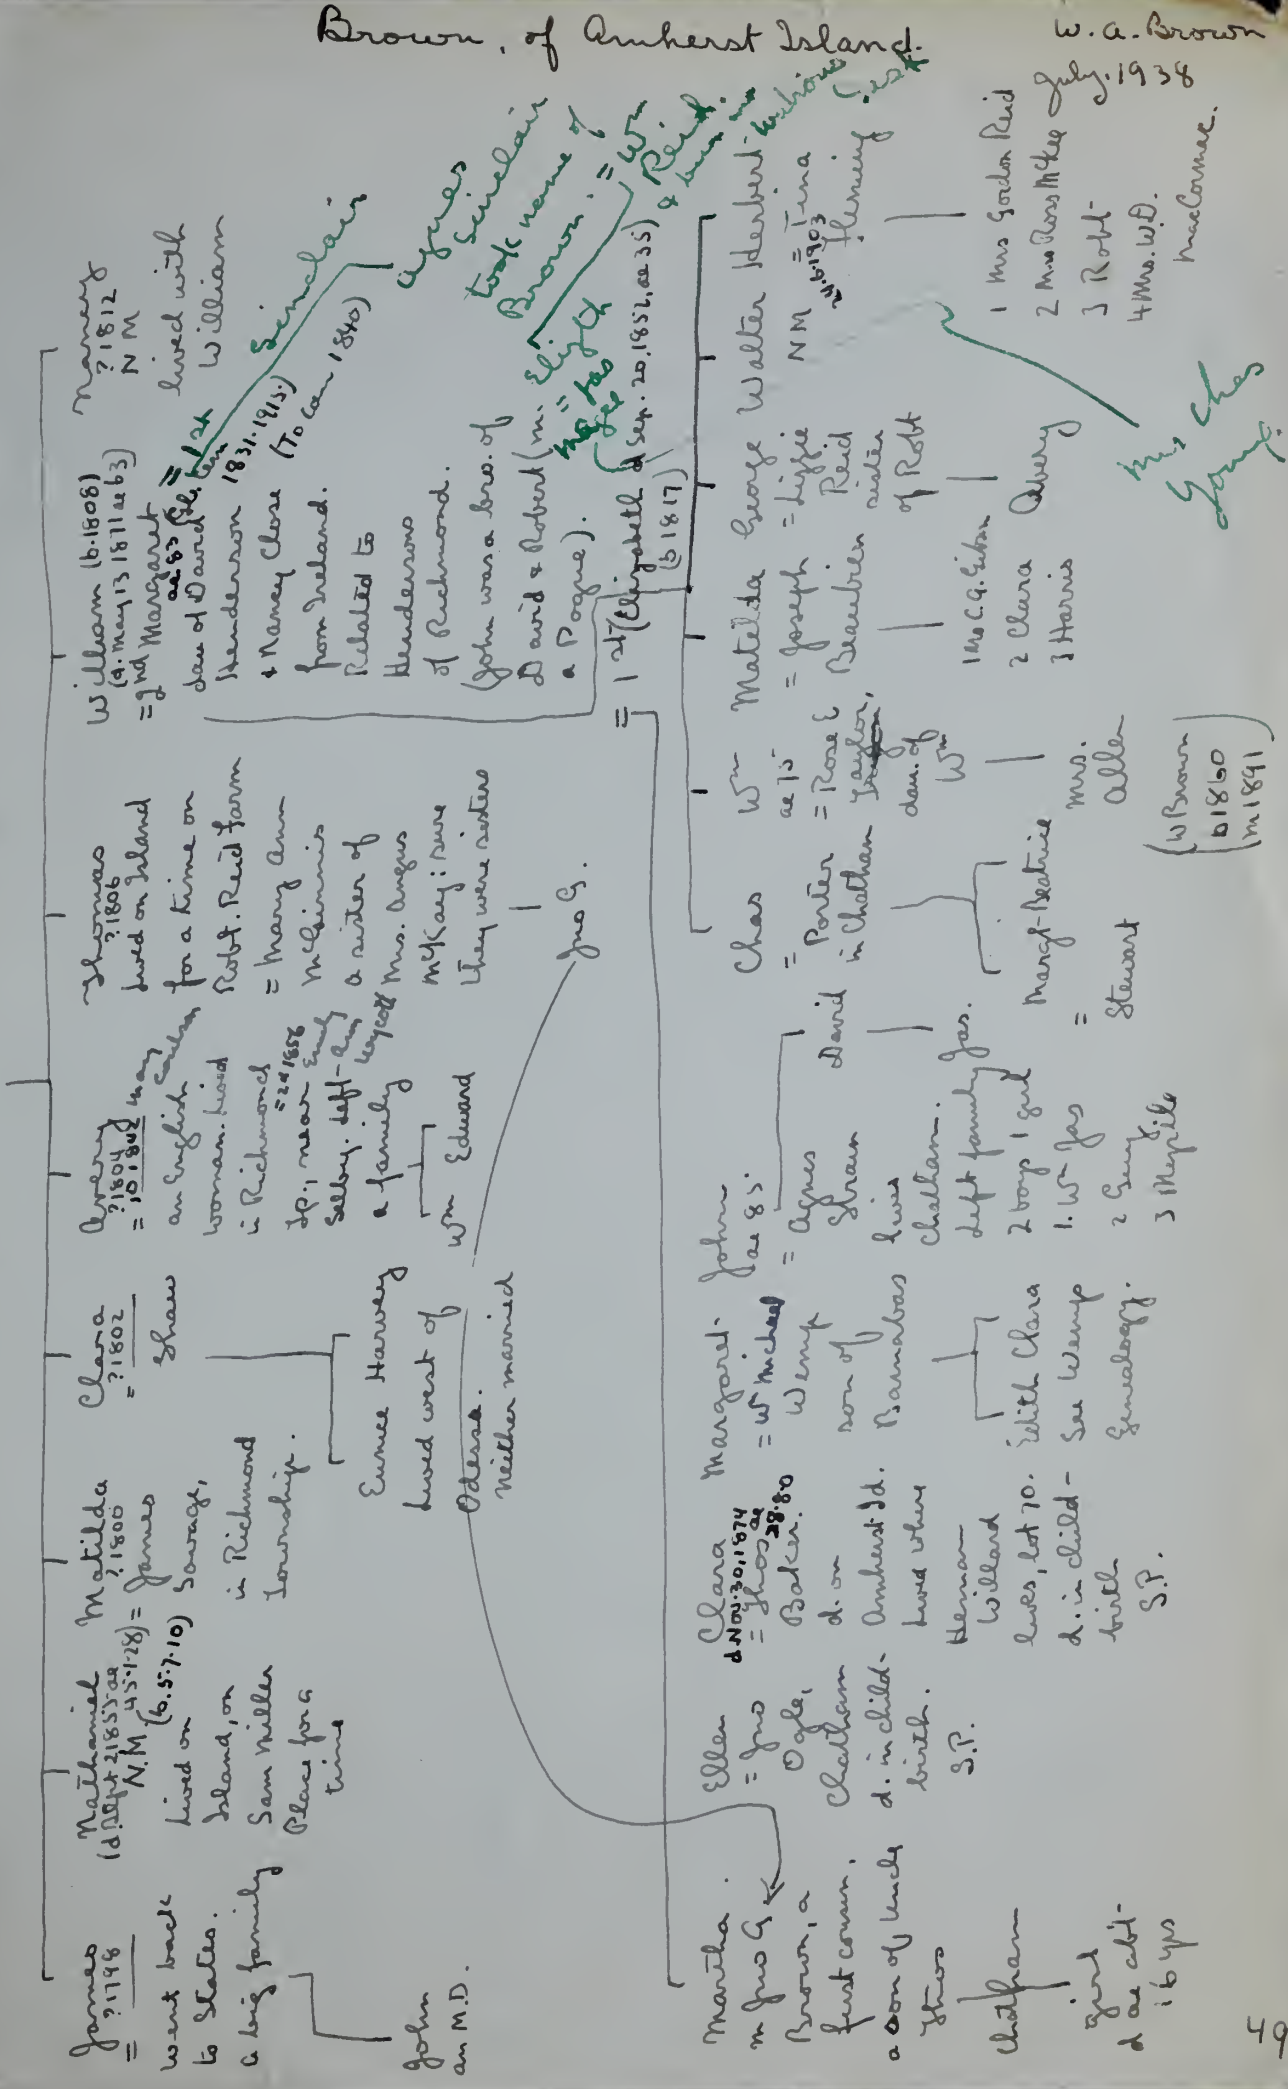 Brown, of Amherst Island.
W.A. Brown
July. 1938
James
= ? 1798
went back
to States.
a big family
John
an M.D.
Nathaniel
(d. Sept 2 1855 ae
N.M. 45.1.28)
(6.5.7.10)
Lived on
Island, on
Sam Miller
Place for a
time
Matilda
? 1800
= James
Savage,
in Richmond
Township.
Clara
= ? 1802
Shaw
Eunice Harvey
Lived west of
Odessa.
Neither married
Avery
? 1804
= 10 1842 Mary
an English
woman. Lived
in Richmond
Tp., near
= 2d 1858
Selby. Left
a family
Wm Edward
Thomas
? 1806
Lived on Island
for a time on
Robt. Reid Farm
= Mary Ann
McGinnis
a sister of
Mrs. Angus
McKay: sure
they were sisters
Jno G.
William (b. 1808)
(d. May 13 1871 ae 63)
= 2nd Margaret
ae 83
dau of David
Henderson
& Nancy Close
from Ireland.
Related to
Hendersons
of Richmond.
(John was a bro. of
David & Robert (m.
a Pogue).
= 1st
Sinclair
1831-1915.)
(To Can 1840)
Agnes
Sinclair
took name of
Brown. = Wm
Reid.
Elizth
= Jas
Magee
= 1st (Elizabeth d Sep. 20, 1852, ae 35)
(b 1817)
Nancy
? 1812
N M
lived with
William
Martha.
m Jno G
Brown, a
first cousin,
a son of Uncle
Thos
Chatham
girl
d ae abt
16 yrs
Ellen
= Jno
Ogle,
Chatham
d. in child-
birth.
S.P.
Clara
d Nov. 30, 1874
= Thos ae
28.80
Baker.
d. on
Amherst Id.
Lived where
Herman
Willard
lives, lot 70.
d. in child-
birth
S.P.
Margaret
= W Michael
Wemp
son of
Barnabas
Edith Clara
See Wemp
Genealogy.
John
ae 85.
= Agnes
Strain
lives
Chatham.
Left family
2 boys 1 girl
1. Wm Jas
3 Myrtle
David
Jas.
Chas
= Porter
in Chatham
Margt Beatrice
=
Stewart
Wm
ae 75
= Rose E
Taylor,
dau. of
Wm
Mrs.
Allen
(W Brown
b 1860
m 1891)
Matilda
= Joseph
Beaubien
1 Mrs C.G. Gibson
2 Clara
3 Harris
George
= Lizzie
Reid
sister
of Robt
Avery
Walter
N M
Herbert
= Tina
24.6.1903
Fleming
1 Mrs Gordon Reid
2 Mrs Ross McKee
3 Robt
4 Mrs. W.D.
MacCormac.
Mrs Chas
49